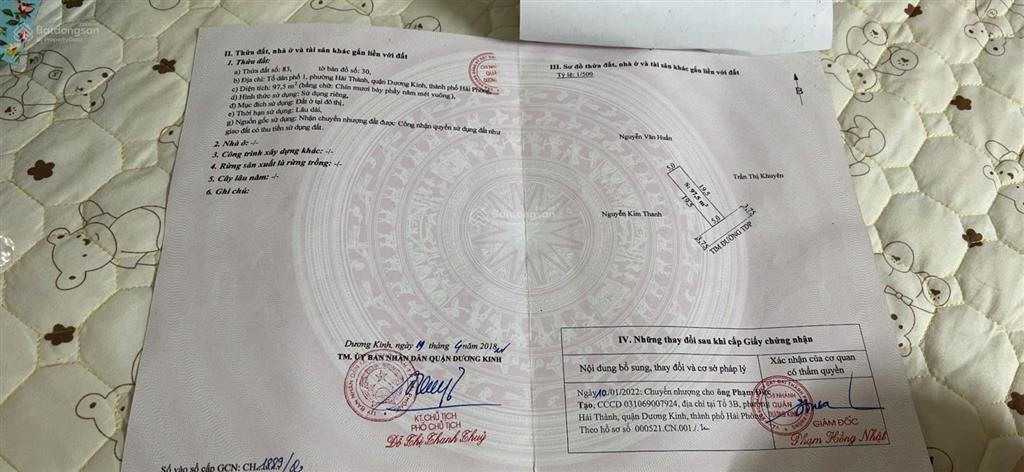 Batdongsan
by PropertyGuru
II. Thửa đất, nhà ở và tài sản khác gắn liền với đất
1. Thửa đất:
a) Thửa đất số: 83, tờ bản đồ số: 30,
b) Địa chỉ: Tổ dân phố 1, phường Hải Thành, quận Dương Kinh, thành phố Hải Phòng,
c) Diện tích: 97,5 m² (bằng chữ: Chín mươi bảy phẩy năm mét vuông),
d) Hình thức sử dụng: Sử dụng riêng,
đ) Mục đích sử dụng: Đất ở tại đô thị,
e) Thời hạn sử dụng: Lâu dài,
g) Nguồn gốc sử dụng: Nhận chuyển nhượng đất được Công nhận quyền sử dụng đất như
giao đất có thu tiền sử dụng đất.
2. Nhà ở: -/-
3. Công trình xây dựng khác: -/-
4. Rừng sản xuất là rừng trồng: -/-
5. Cây lâu năm: -/-
6. Ghi chú:
Dương Kinh, ngày 19 tháng 4 năm 2018
TM. ỦY BAN NHÂN DÂN QUẬN DƯƠNG KINH
KT. CHỦ TỊCH
PHÓ CHỦ TỊCH
Đỗ Thị Thanh Thuỷ
Số vào sổ cấp GCN: CH.
III. Sơ đồ thửa đất, nhà ở và tài sản khác gắn liền với đất
Tỷ lệ: 1/500
B
Nguyễn Văn Huấn
Trần Thị Khuyên
Nguyễn Kim Thanh
5,0
19,5
N: 97,5 m²
19,5
5,0
3,75
3,75
TIM ĐƯỜNG TDP
IV. Những thay đổi sau khi cấp Giấy chứng nhận
Nội dung bổ sung, thay đổi và cơ sở pháp lý
Xác nhận của cơ quan
có thẩm quyền
Ngày 10/01/2022: Chuyển nhượng cho ông Phạm Đức
Tạo, CCCD 031069007924, địa chỉ tại Tổ 3B, phường
Hải Thành, quận Dương Kinh, thành phố Hải Phòng,
Theo hồ sơ số 000521.CN.001./.
CHI NHÁNH
QUẬN
DƯƠNG KINH
GIÁM ĐỐC
Phạm Hồng Nhật